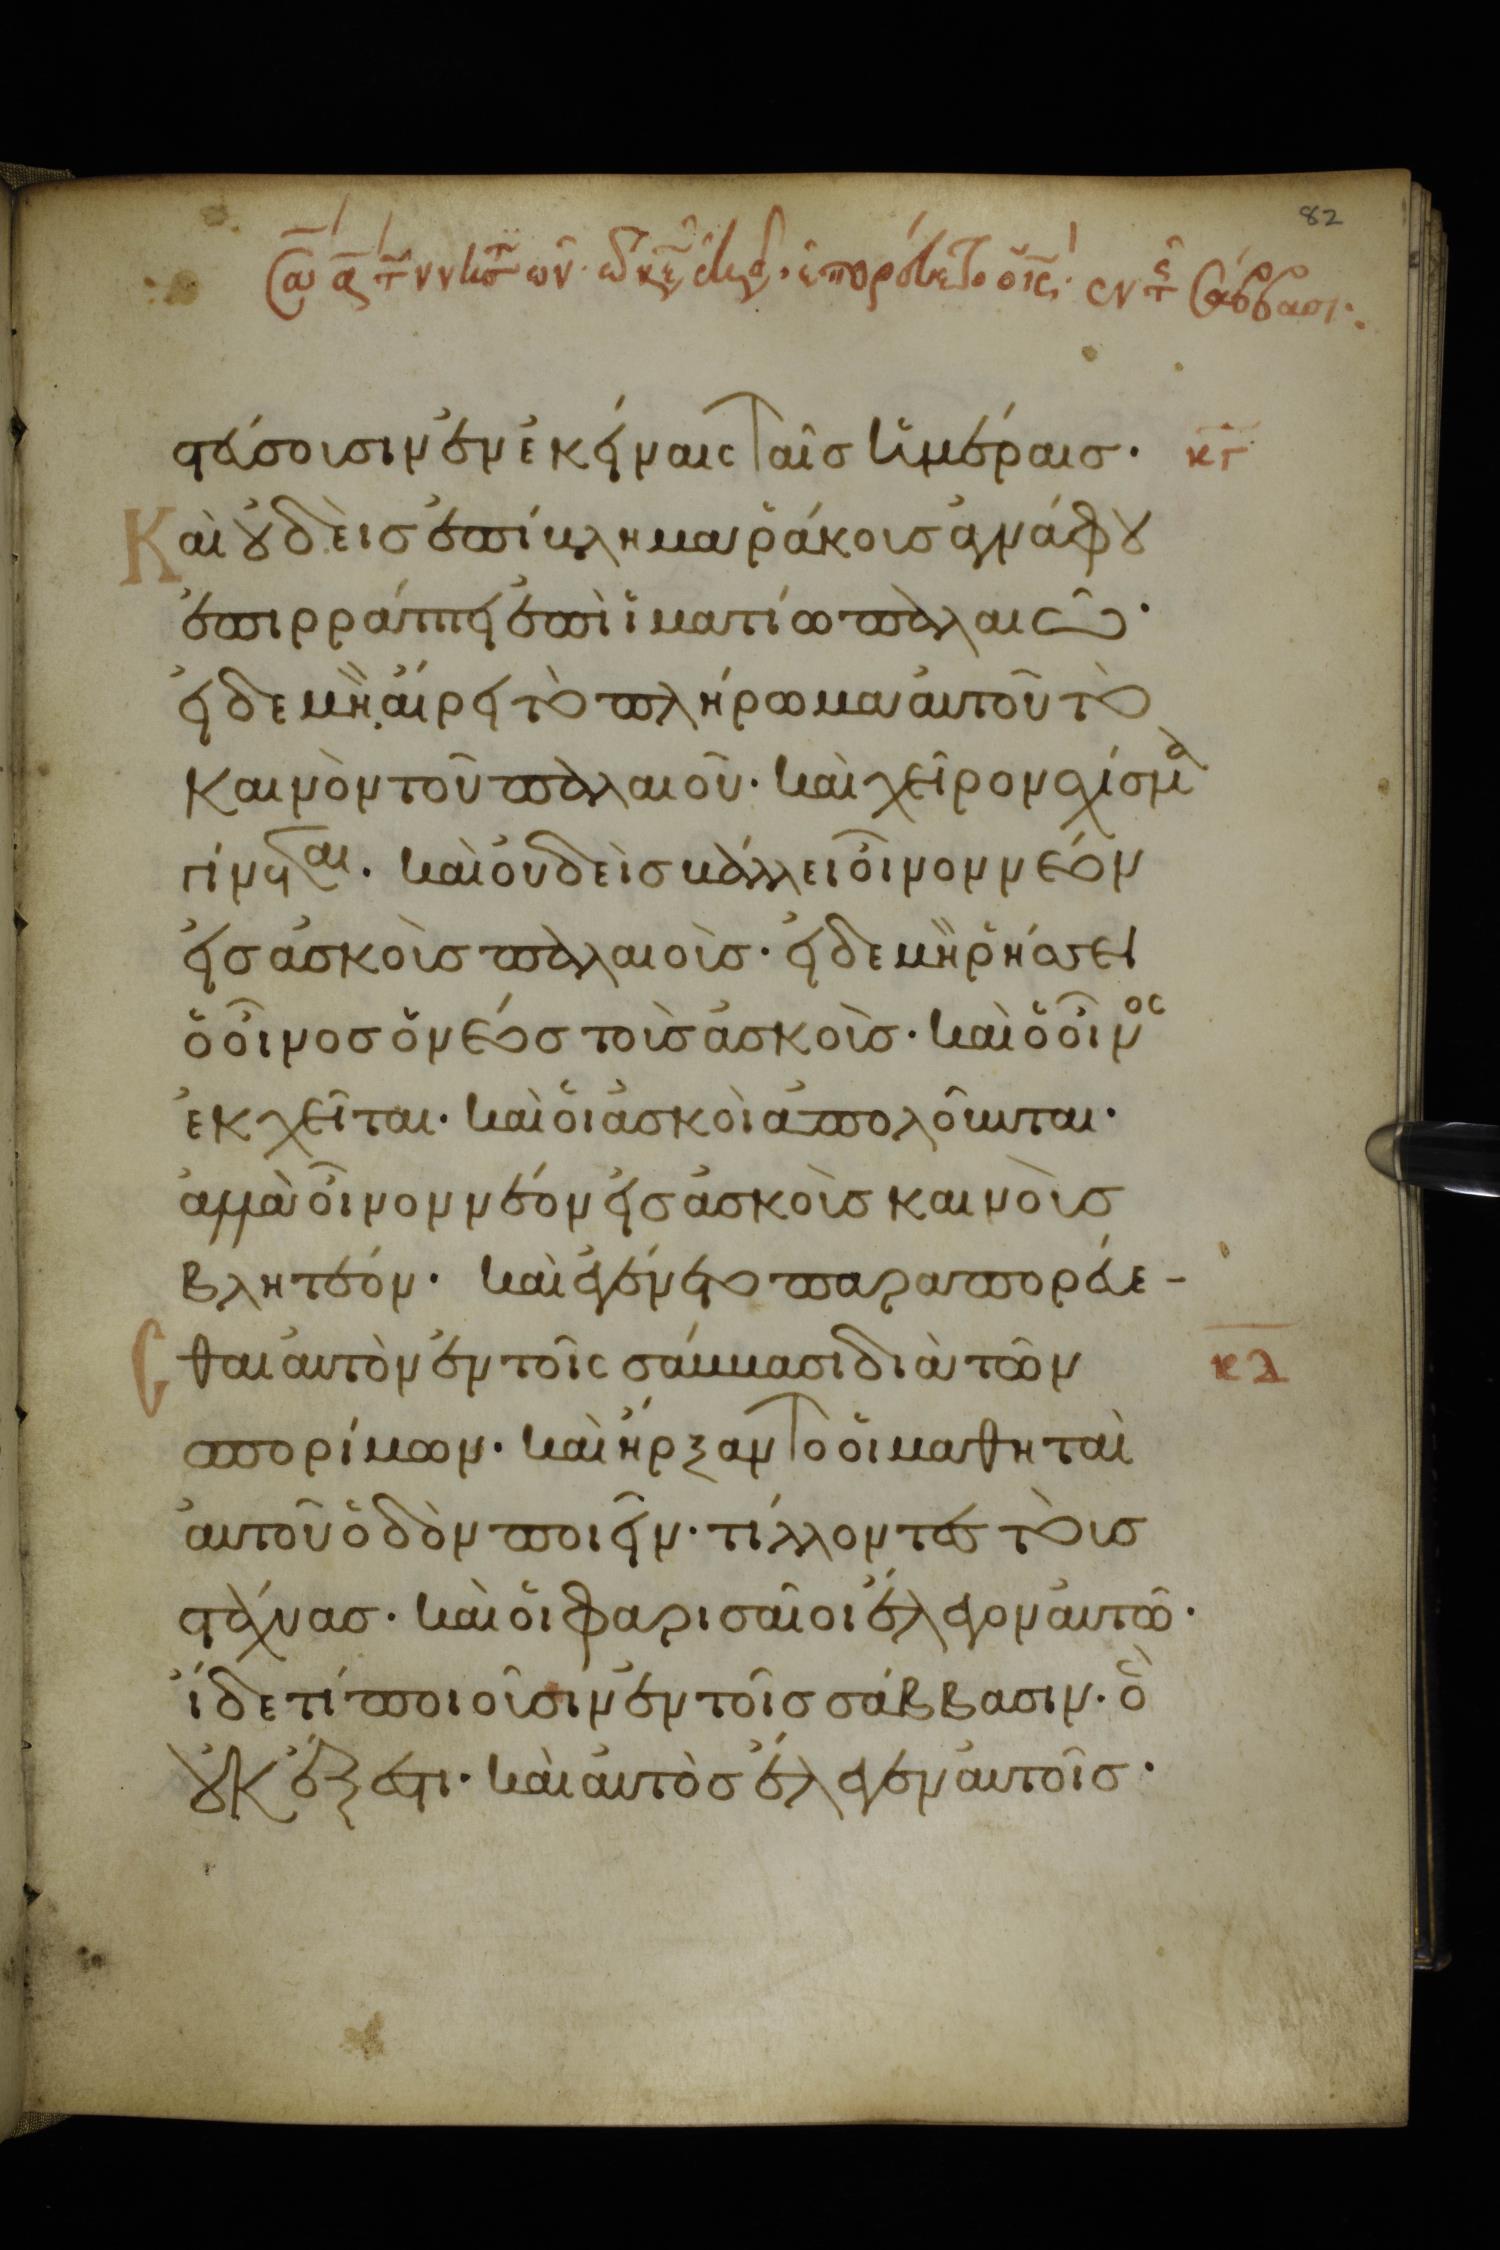 82
στεύσουσιν ἐν ἐκείναις ταῖς ἡμέραις· κγ
Καὶ οὐδεὶς ἐπίβλημα ῥάκους ἀγνάφου
ἐπιρράπτει ἐπὶ ἱματίω παλαιῶ·
εἰ δε μὴ, αἴρει τὸ πλήρωμα αὐτοῦ τὸ
καινὸν τοῦ παλαιοῦ· καὶ χεῖρον σχίσμα
γίνεται· καὶ οὐδεὶς βάλλει οἶνον νέον
εἰς ἀσκοὺς παλαιοὺς· εἰ δε μὴ ῥήσσει
ὁ οἶνος ὁ νέος τοὺς ἀσκοὺς· καὶ ὁ οἶνος
ἐκχεῖται· καὶ οἱ ἀσκοὶ ἀπολοῦνται·
ἀλλὰ οἶνον νέον εἰς ἀσκοὺς καινοὺς
βλητέον· καὶ ἐγένετο παραπορεύε-
σθαι αὐτὸν ἐν τοῖς σάββασι διὰ τῶν κδ
σπορίμων· καὶ ἤρξαντο οἱ μαθηταὶ
αὐτοῦ ὁδὸν ποιεῖν· τίλλοντες τοὺς
στάχυας· καὶ οἱ φαρισαῖοι ἔλεγον αὐτῶ·
ἴδε τί ποιοῦσιν ἐν τοῖς σάββασιν· ὃ
οὐκ ἔξεστι· καὶ αὐτὸς ἔλεγεν αὐτοῖς·